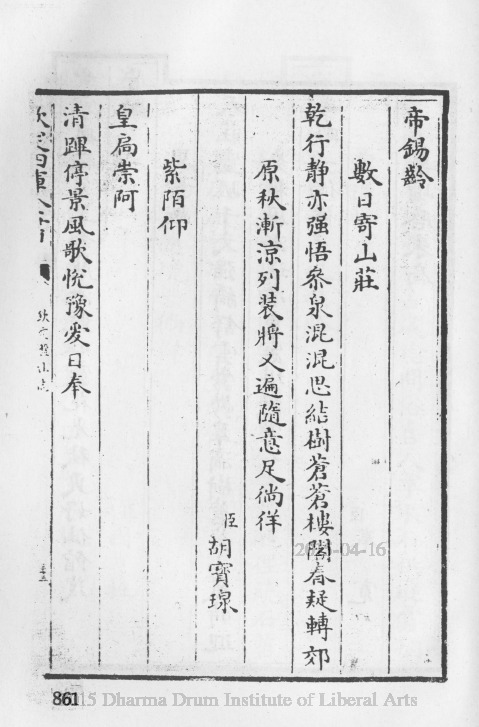 帝錫齡
數日寄山莊
乾行靜亦强悟參泉混混思結樹蒼蒼樓閣春疑轉郊
原秋漸涼列装將乂遍隨意足徜徉
臣胡寶瑔
紫陌仰
皇扃崇阿
清蹕停景風歌悦豫爰日奉
欽定四庫全書
欽定盤山志
861
2015 Dharma Drum Institute of Liberal Arts